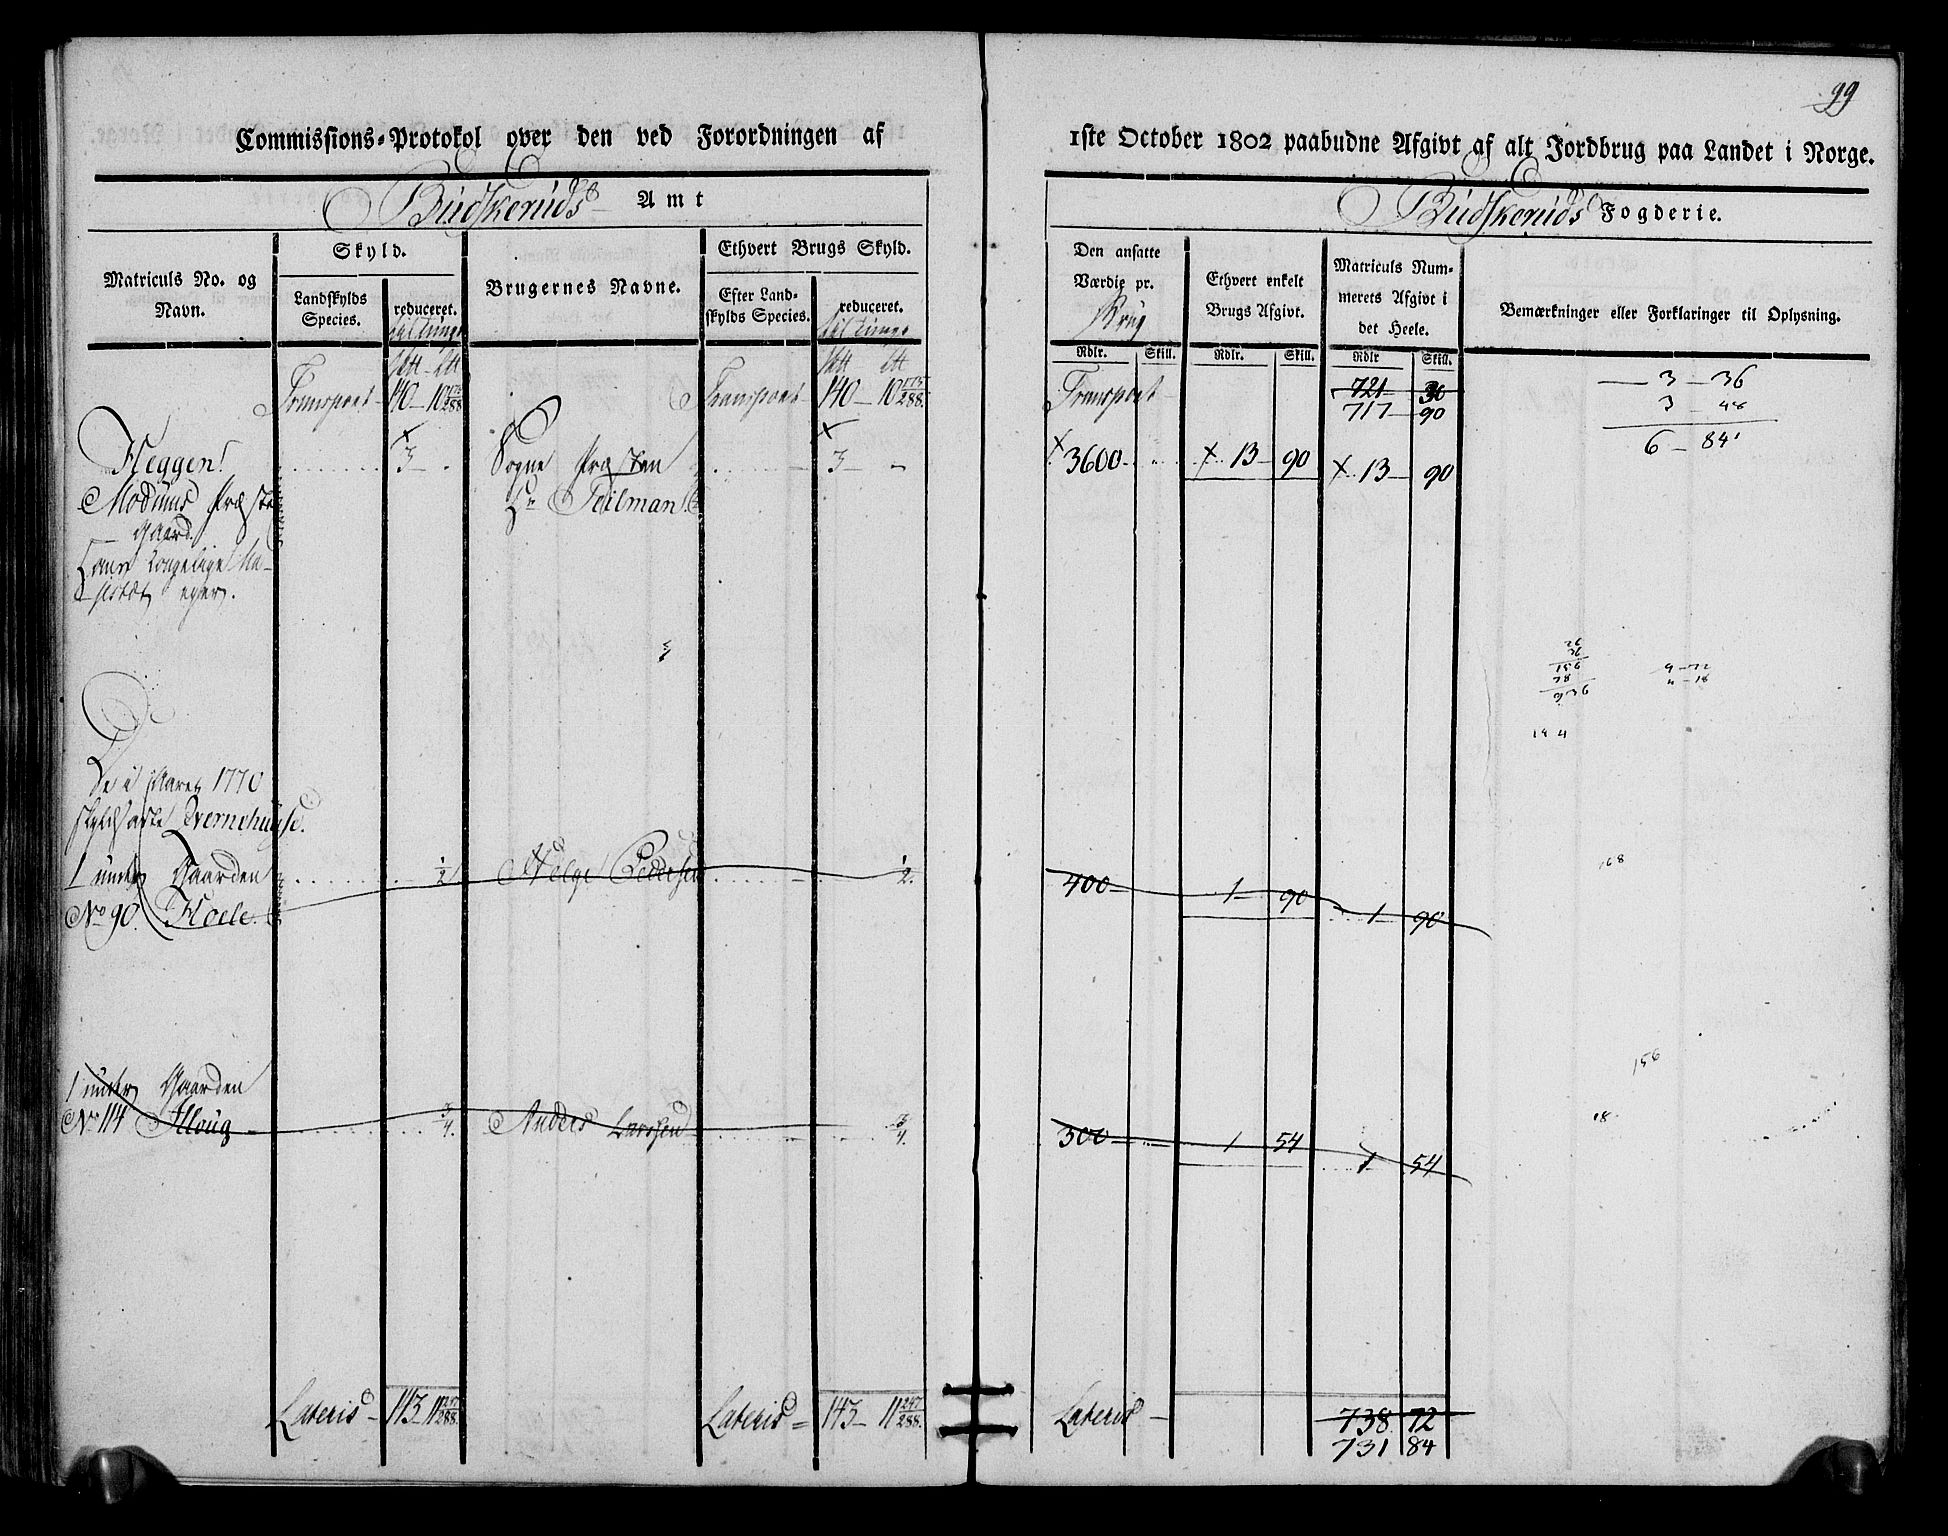 99
Commissions-Protokol over den ved Forordningen af 1ste October 1802 paabudne Afgivt af alt Jordbrug paa Landet i Norge.
Budskeruds Amt
Budskeruds Fogderie.
Matriculs No. og Navn.
Skyld.
Landskylds Species.
reduceret.
Brugernes Navne.
Ethvert Brugs Skyld.
Efter Landskylds Species.
reduceret.
Den ansatte Værdie pr. Brug
Ethvert enkelt Brugs Afgivt.
Matriculs Nummerets Afgivt i det Heele.
Bemærkninger eller Forklaringer til Oplysning.
Rdlr. Skill. Rdlr. Skill. Rdlr Skill.
Transport 140 10 175/288 Transport 140 10 175/288. Transport 721 30
717 90
3 36
3 48
6 84
Heggen 3 Sogne Præsten 3 3600 13 90 13 90
Modums Præste Hr Teilman
Gaard.
Hans Kongelige Ma-
jestæt eyer.
De i Aaret 1770
skyldsatte Qvernehuuse.
1 under Gaarden 1/2 Helge Pedersen 1/2. 400 1 90 1 90
No 90. Hoele.
168
156
1 under Gaarden
No 114 Houg 3/4. Anders Larssen 3/4. 300 1 54 1 54
18
Lateris 143 11 247/288. Lateris 143 11 247/288. Lateris 738 72
731 84